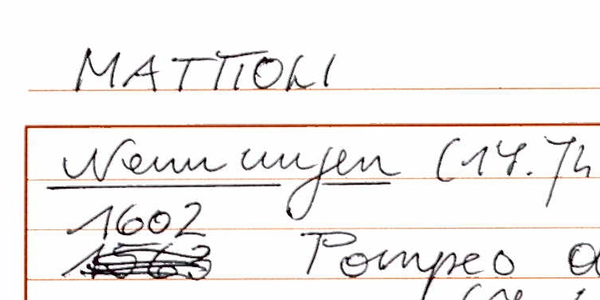 MATTIOLI
Nennungen (14. Jh
1602
1563 Pompeo